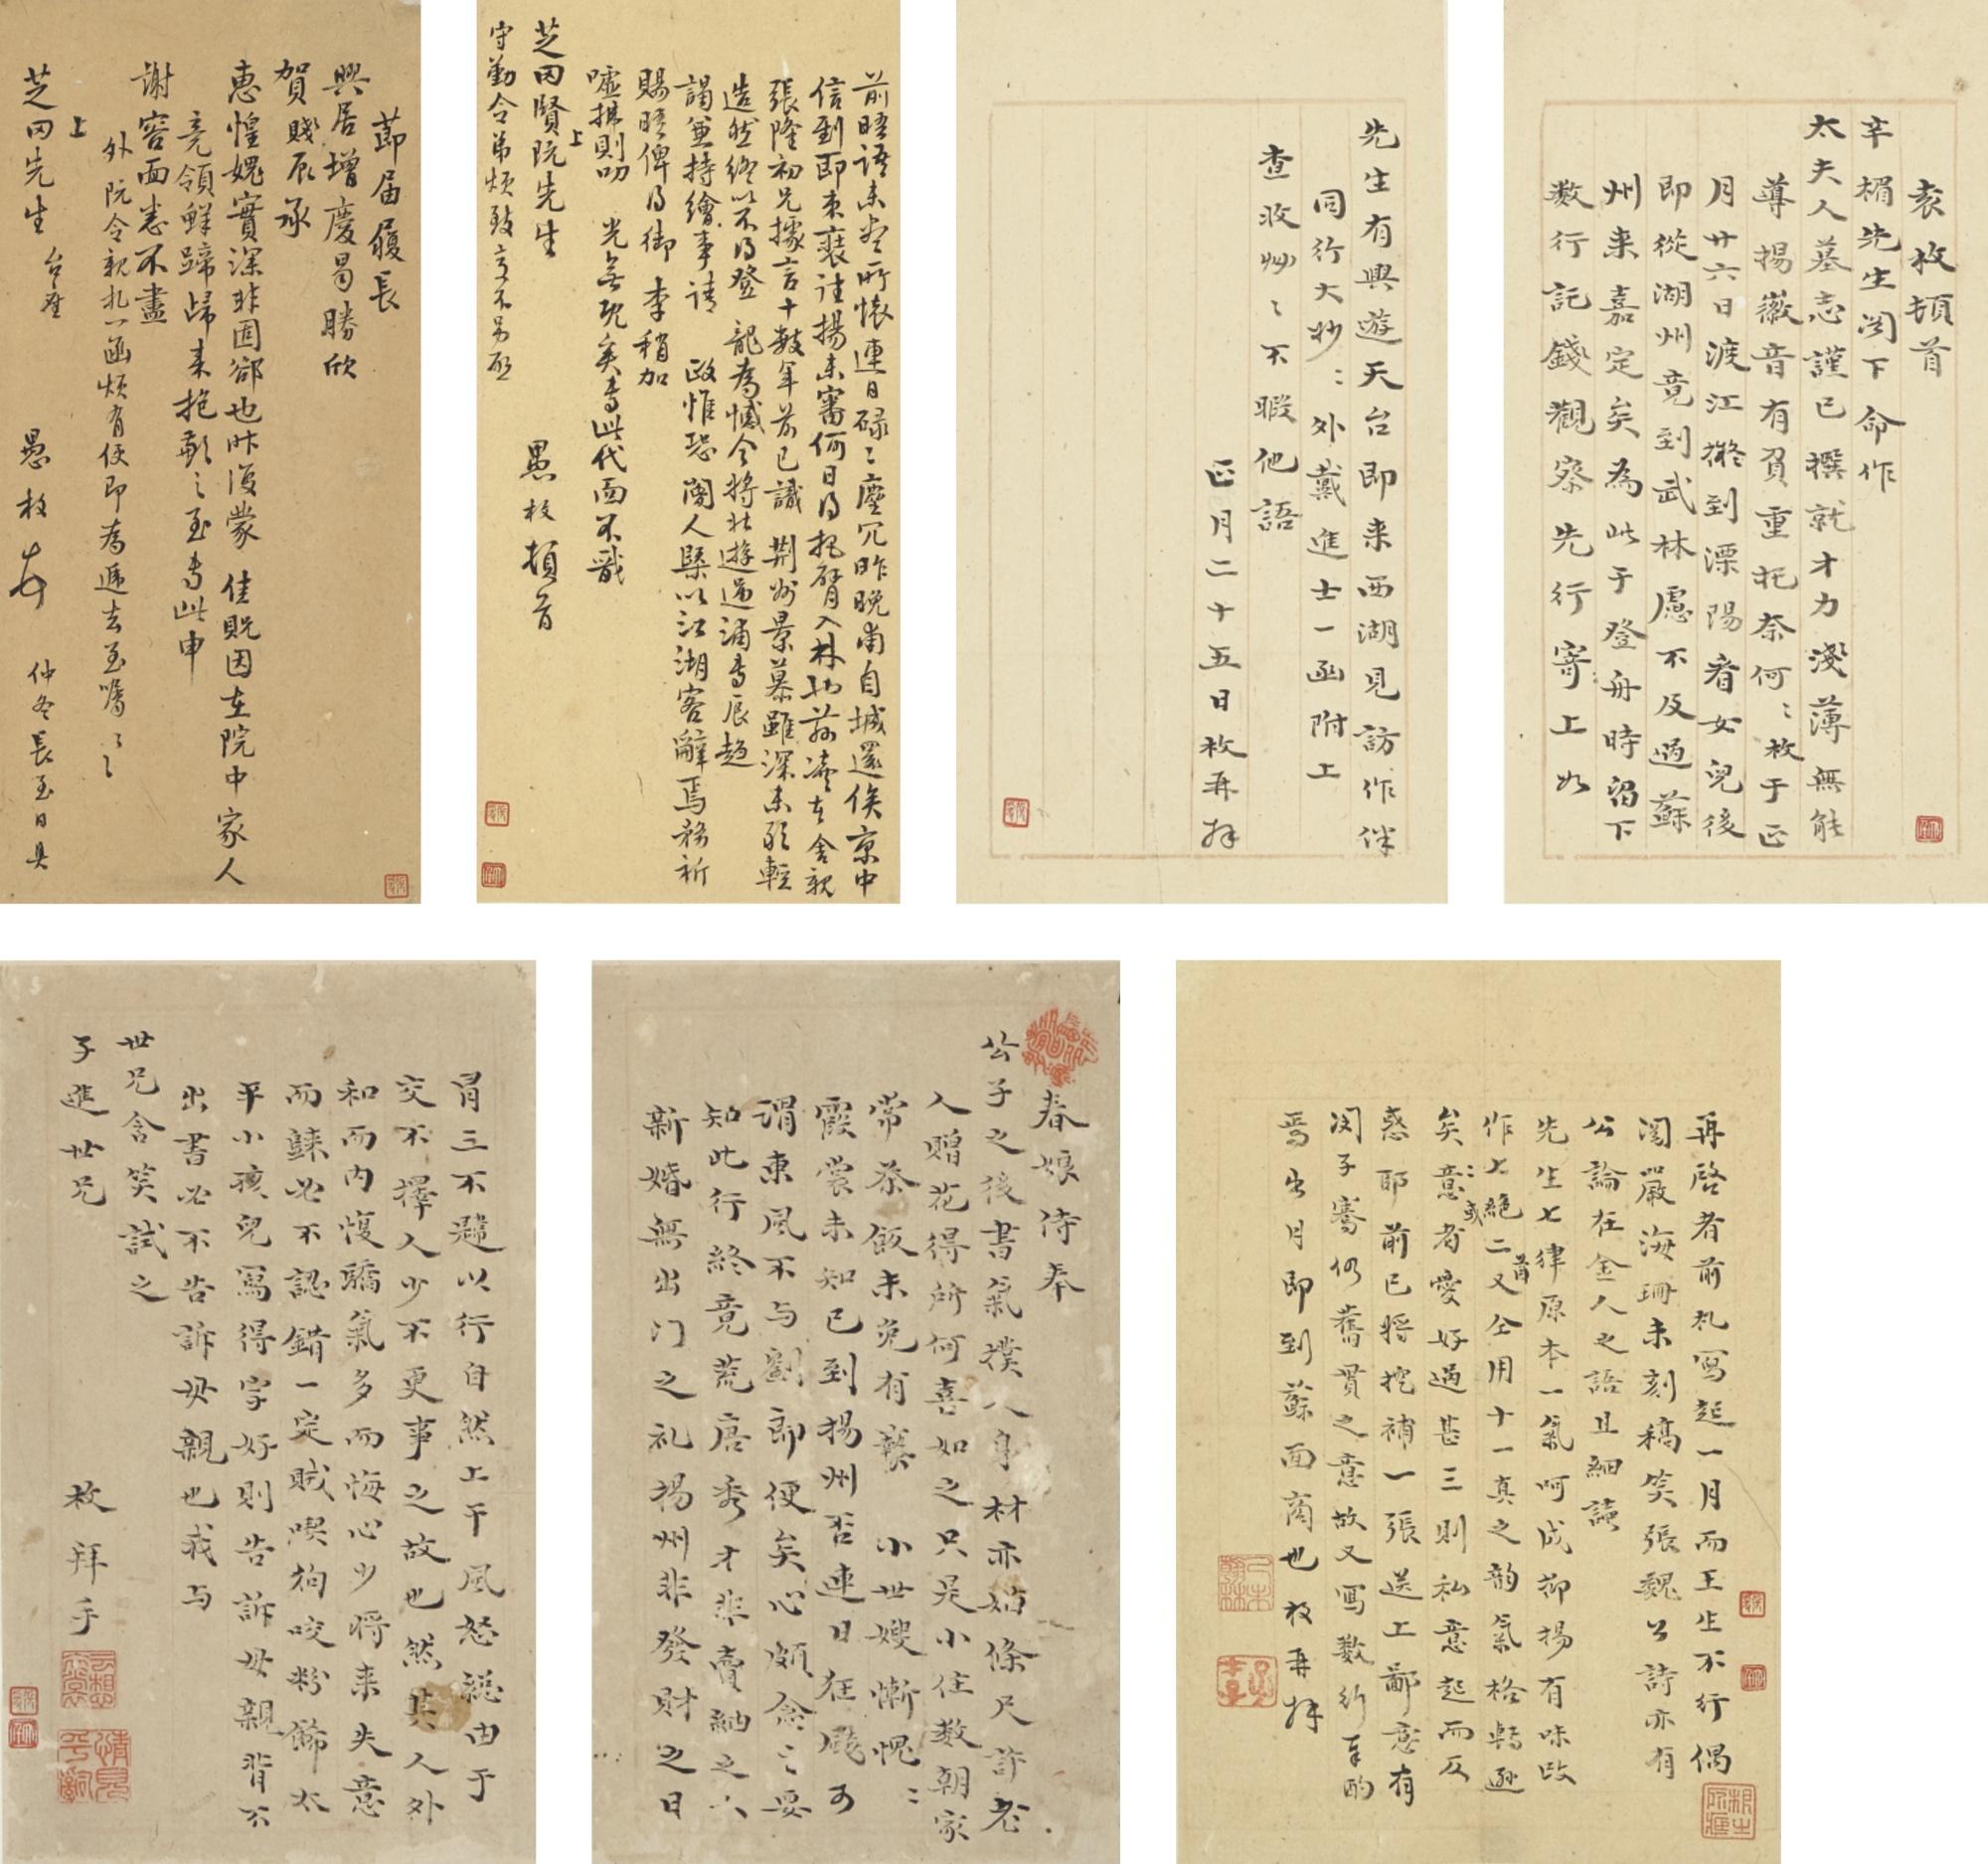 袁枚頓首
辛楣先生閣下命作
太夫人墓志謹已撰就才力淺薄無能
導揚徽音有負重托奈何〻枚于正
月廿六日渡江擬到溧陽看女兒後
即從湖州竟到武林慮不及過蘇
州来嘉定矣為此于登舟時留下
数行託錢觀察先行寄上如
先生有興遊天台即来西湖見訪作伴
同行大妙〻外戴進士一函附上
查收艸〻不暇他語
正月二十五日枚再拜
前晤語未尽所懷連日碌〻塵冗昨晚甫自城還俟京中
信到即束裝往揚未審何日得把臂入林也茲凌在舍親
張隆初兄據言十數年前已識荆州景慕雖深未敢輕
造然終以不得登龍為憾令将北遊過浦専辰趨
謁並持繪事請政惟恐閽人槩以江湖客辭焉務祈
賜晤俾得御李稍加
噓拂則叨光無既矣専此代面不戩
上
芝田賢阮先生
愚枚頓首
守勤令弟煩致意不另啟
節届履長
興居增慶曷勝欣
賀賤辰承
惠惶媿實深非固卻也昨復蒙佳貺因在院中家人
竟領鮮蹄歸来抱歉之至専此申
謝容面悉不盡
外阮令親札一函煩有便即為遞去至嘱〻〻
上
芝田先生台座
愚枚
仲冬長至日具
再啓者前札寫起一月而王生不行偶
閱嚴海珊未刻稿笑張魏公詩亦有
公論在金人之語且細讀
先生七律原本一氣呵成抑揚有味改
作七絕二首又仝用十一真之韵氣格轉遜
矣意〻或者愛好過甚三則私意起而反
惑耶前已將挖補一張送上鄙意有
閔子騫仍舊貫之意故又寫數行奉酌
焉出月即到蘇面商也枚再拜
春娘侍奉
公子之後書氣撲人身材亦妯條尺許老
人贈花得所何喜如之只是小住数朝家
常茶飯未免有褻小世嫂慚愧〻
霞裳未知已到揚州否連日狂颷可
謂東風不与劉郎便矣心頗念〻要
知此行終竟荒唐秀才非賣紬之人
新婚無出门之礼揚州非發財之日
冐三不韙以行自然上干風怒総由于
交不擇人少不更事之故也然其人外
和而内愎驕氣多而悔心少將来失意
而䠶必不認錯一定賊喫狗咬粉飾太
平小孩兒寫得字好則告訴母親背不
出書必不告訴母親也我与
世兄含笑試之
子進世兄
枚拜手